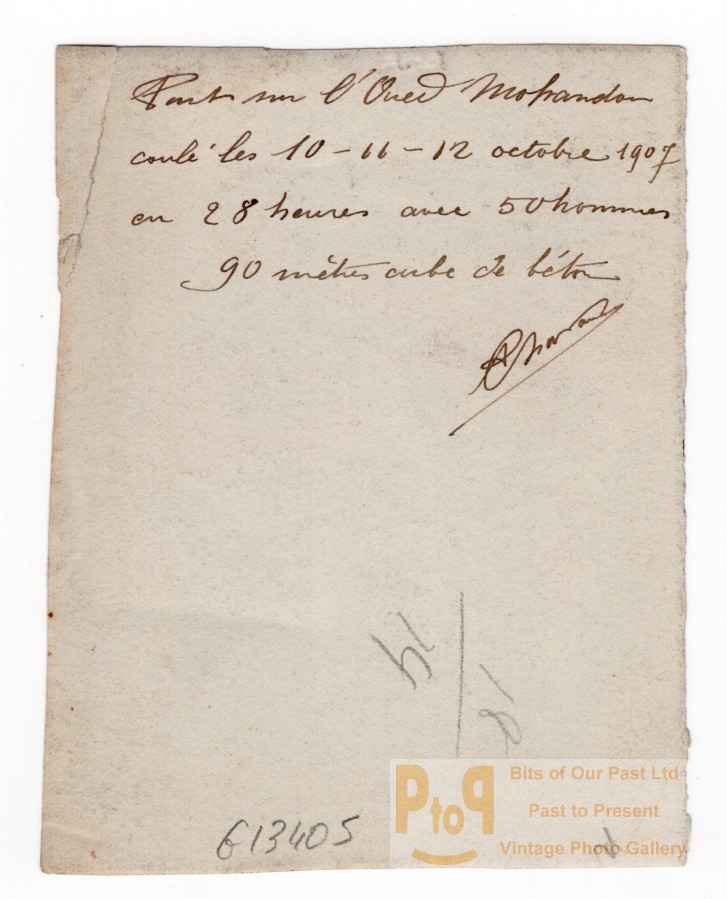 Pont sur l'Oued
coulé les 10-11-12 octobre 1907
en 28 heures avec 50 hommes
90 mètres cube de béton
14
18
G13405
PtoP
Bits of Our Past Ltd
Past to Present
Vintage Photo Gallery